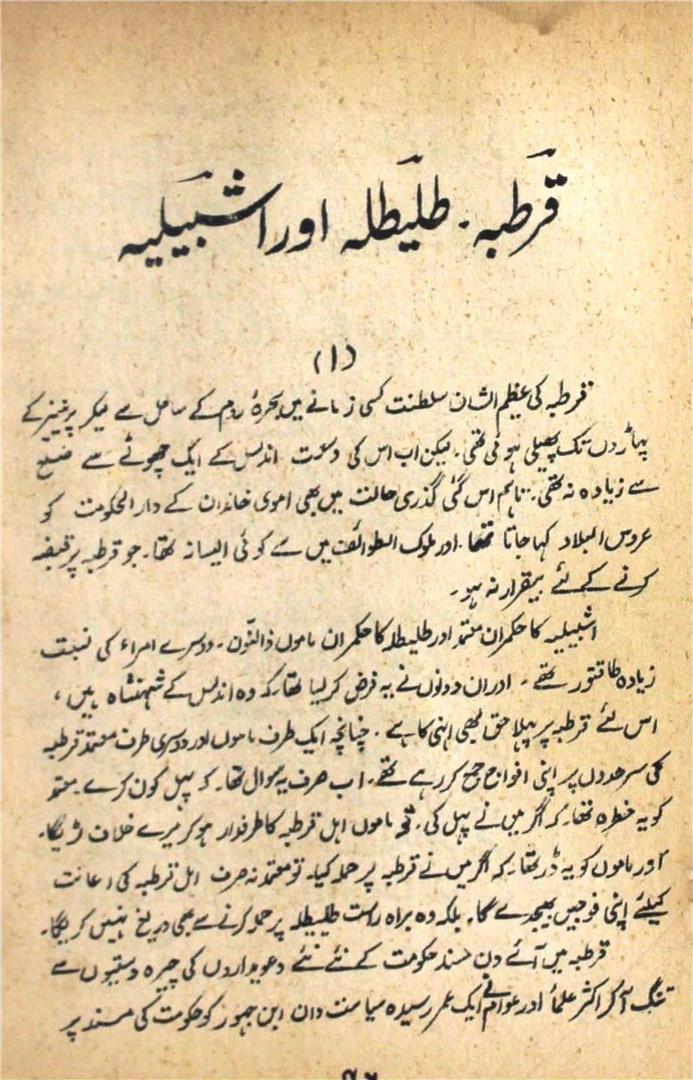 قرطبہ۔ طلیطلہ اور اشبیلیہ
(۱)
قرطبہ کی عظیم الشان سلطنت کسی زمانے میں بحیرۂ روم کے ساحل سے لیکر پرنیز کے
پہاڑوں تک پھیلی ہوئی تھی۔ لیکن اب اس کی وسعت اندلس کے ایک چھوٹے سے ضلع
سے زیادہ نہ تھی۔ تاہم اس گئی گذری حالت میں بھی اموی خاندان کے دارالحکومت کو
عروس البلاد کہا جاتا تھا۔ اور ملوک الطوائف میں سے کوئی ایسا نہ تھا۔ جو قرطبہ پر قبضہ
کرنے کے لئے بیقرار نہ ہو۔
اشبیلیہ کا حکمران معتمد اور طلیطلہ کا حکمران ماموں ذالنّون۔ دوسرے امراء کی نسبت
زیادہ طاقتور تھے۔ اور ان دونوں نے یہ فرض کر لیا تھا۔ کہ وہ اندلس کے شہنشاہ ہیں،
اس لئے قرطبہ پر پہلا حق بھی انہی کا ہے۔ چنانچہ ایک طرف ماموں اور دوسری طرف معتمد قرطبہ
کی سرحدوں پر اپنی افواج جمع کر رہے تھے۔ اب صرف یہ سوال تھا۔ کہ پہل کون کرے۔ معتمد
کو یہ خطرہ تھا۔ کہ اگر میں نے پہل کی۔ تو ماموں اہل قرطبہ کا طرفدار ہو کر میرے خلاف لڑیگا۔
اور ماموں کو یہ ڈر تھا۔ کہ اگر میں نے قرطبہ پر حملہ کیا۔ تو معتمد نہ صرف اہل قرطبہ کی اعانت
کیلئے اپنی فوجیں بھیجدے گا۔ بلکہ وہ براہ راست طلیطلہ پر حملہ کرنے سے بھی دریغ نہیں کریگا۔
قرطبہ میں آئے دن مسند حکومت کے نئے نئے دعویداروں کی چیرہ دستیوں سے
تنگ آ کر اکثر علماؑ اور عوام نے ایک عمر رسیدہ سیاست دان ابن جہور کو حکومت کی مسند پر